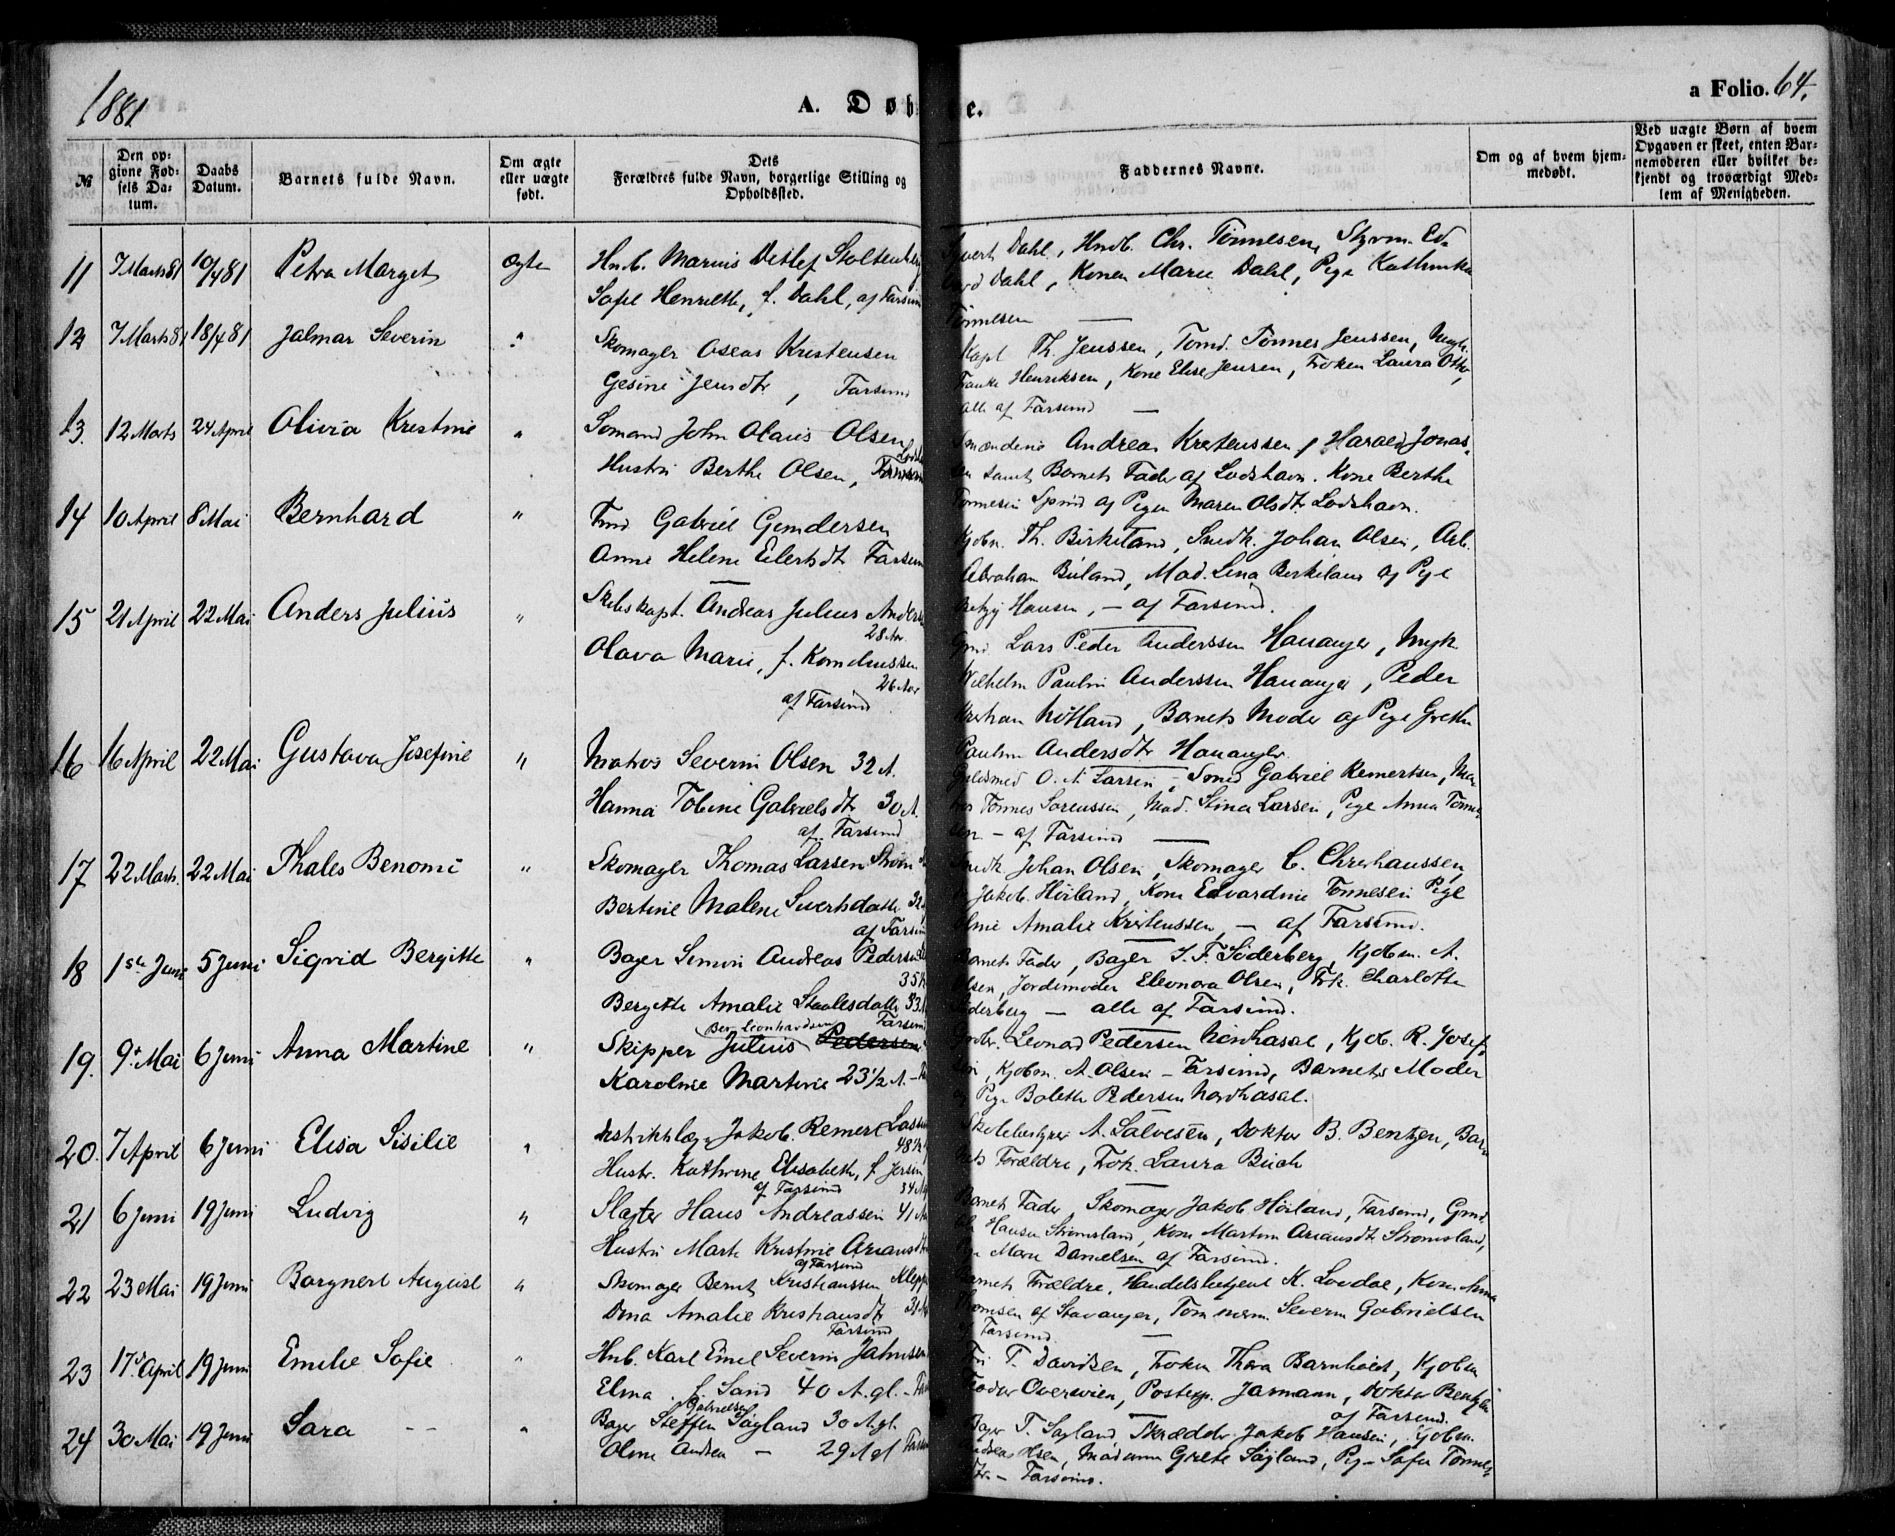 1881
A. Døb
e.
a Folio. 64.
№
Den op-
givne Fød-
sels Da-
tum.
Daabs
Datum.
Barnets fulde Navn.
Om ægte
eller uægte
født.
Dets
Forældres fulde Navn, borgerlige Stilling og
Opholdssted.
Faddernes Navne.
Om og af hvem hjem-
medøbt.
Ved uægte Børn af hvem
Opgaven er skeet, enten Bar-
nemoderen eller hvilket be-
kjendt og troværdigt Med-
lem af Menigheden.
11 7 Marts 81 10/4 81 Petra Marget Ægte Hnb. Marius Detlef Stoltenberg
Sofie Henriette, f. Dahl, af Farsund
Sivert Dahl, Hndb. Chr. Tönnesen, Styrm. Ed-
vard Dahl, Konen Marie Dahl, Pige Kathrinka
Tönnesen
12 7 Marts 81 18/4 81 Jalmar Severin " Skomager Oseas Kristensen
Gesine Jensdtr, Farsund
Kapt Th. Jenssen, Tomd. Tönnes Jenssen, Ungk.
Henriksen, Kone Elise Jensen, Fröken Laura Otto,
alle af Farsund
13. 12 Marts 24 April Olivia Kristine " Sömand John Olaus Olsen
Hustru Berthe Olsen,
Andreas Kristenssen, Harald Jonas-
sen samt Barnets Fader af Lodshavn. Kone Berthe
Tönnesen Spind og Pigen Maren Olsdtr Lodshavn.
14 10 April 8 Mai Bernhard " Gabriel Gundersen
Anne Helene Eilertsdtr Farsund
Kjöbm. Th. Birkeland, Snedk. Johan Olsen, Arb.
Abraham Büland, Mad. Lina Berkeland og Pige
Betzy Hansen, – af Farsund.
15 21 April 22 Mai Anders Julius " Skibskapt. Andreas Julius Anders
28 Aar
Olava Marie, f. Kornelinssen
26 Aar
af Farsund
Gmd. Lars Peder Anderssen Hananger, Ungk.
Wilhelm Paulin Anderssen Hananger, Peder
Kristian , Barnets Moder og Pige Grethe
Pauline Andersdtr Hananger.
16 16 April 22 Mai Gustava Josefine " Matros Severin Olsen 32 A.
Hanna Tobine Gabrielsdtr 30 A.
af Farsund
Guldsmed O. A. Larsen, Smed Gabriel Reinertsen, Ma-
tros Tönnes Sörenssen, Mad. Stina Larsen, Pige Anna Tönne-
sen – af Farsund
17 22 Marts. 22 Mai Thales Benomi " Skomager Thomas Larsen
Bertine Malene Sivertsdatter 32
af Farsund
Snedk. Johan Olsen, Skomager C. Christianssen,
Jakob Höiland, Kone Edvardine Tönnesen Pige
Amalie Kristenssen, – af Farsund.
18 1ste Juni 5 Juni Sigrid Bergitte " Bager Simon Andreas Pedersen
35
Bergitte Amalie Staalesdatter 33
Farsund
Barnets Fader, Bager S. F. Söderberg, Kjöbm. A.
Olsen, Jordemoder Eleonora Olsen, Frk. Charlotte
Söderberg – alle af Farsund.
19. 9de Mai 6 Juni Anna Martine " Skipper Julius Pedersen
Leonhardsen
Karoline Martinie 23 1/2 A.
Leonard Pedersen Nordhasal, Kjöb. R. Josef-
sen, Kjöbm. A. Olsen – Farsund, Barnets Moder
og Pige Bolette Pedersen Nordhasal.
20. 7 April 6 Juni Elisa Sisilie " Distriktslæge Jakob Reinert
48
Hustr. Kathrine Elisabeth, f. Jersin
af Farsund 34
Skolebestyrer A. Salvesen, Doktor B. Bentzen, Bar-
nets Forældre, Frk. Laura Buch
21 6 Juni 19 Juni Ludvig " Slagter Hans Andreassen 41
Hustru Marte Kristine Ariansdtr
af Farsund
Barnets Fader, Skomager Jakob Höiland, Farsund, Gmd.
Hansen Strömsland, Kone Martine Ariansdtr Strömsland,
Marie Danielsen af Farsund.
22 23 Mai 19 Juni Borgnert August " Skomager Bernt Kristianssen Klepp
Dina Amalie Kristiansdtr 31
Farsund
Barnets Forældre, Handelsbetjent K. Lövdal, Kone Anna
Thomsen af Stavanger, Severin Gabrielsen
af Farsund.
23 17de April 19 Juni Emilie Sofie " Hnb. Karl Emil Severin Jahnsen
Elma f. Sand 40 A. gl.
T. Davidsen, Fröken Thora Barnholdt, Kjöbm
Oversvien, Postexp. Jarmann, Doktor Bentzen
af Farsund.
24 30 Mai 19 Juni Sara – – " Bager Steffen Sögland 30 A gl.
Gabrielsen
Oline Andsen – 29 A gl Farsund
Bager T. Sögland Skrædder Jakob Hansen, Kjöbm.
Andreas Olsen, Madame Grete Sögland, Pige Sofie Tönnes-
dtr. – Farsund.